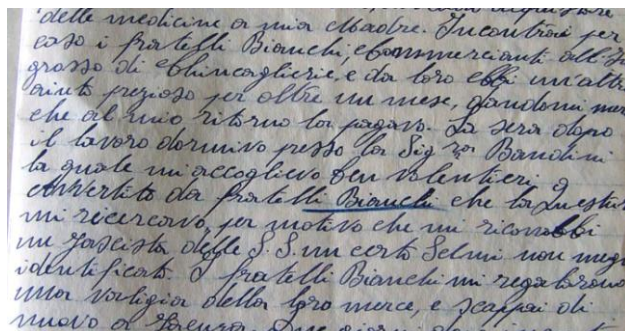 delle medicine a mia Madre. Incontrai per
caso i fratelli Bianchi, commercianti all'in
grosso di chincaglierie, e da loro ebbi un'altro
aiuto prezioso per oltre un mese, dandomi mer
che al mio ritorno la pagavo. La sera dopo
il lavoro dormivo presso la Sig ra Bandini
la quale mi accoglievo ben volentieri
avvertito da fratelli Bianchi che la Questur
mi ricercava, per motivo che mi riconobbi
un fascista delle S.S. un certo Selmi non megl
identificato I fratelli Bianchi mi regalarono
una valigia della loro merce, e scappai di
nuovo a